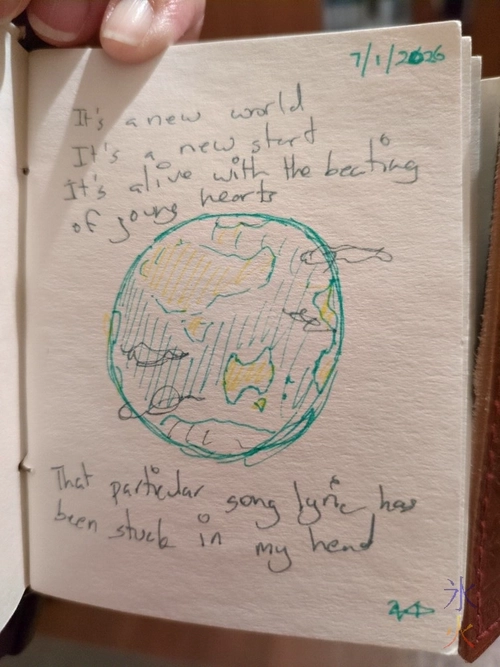 7/1/2026
It's a new world
It's a new start
It's alive with the beating
of young hearts
That particular song lyric has
been stuck in my head
氷
火